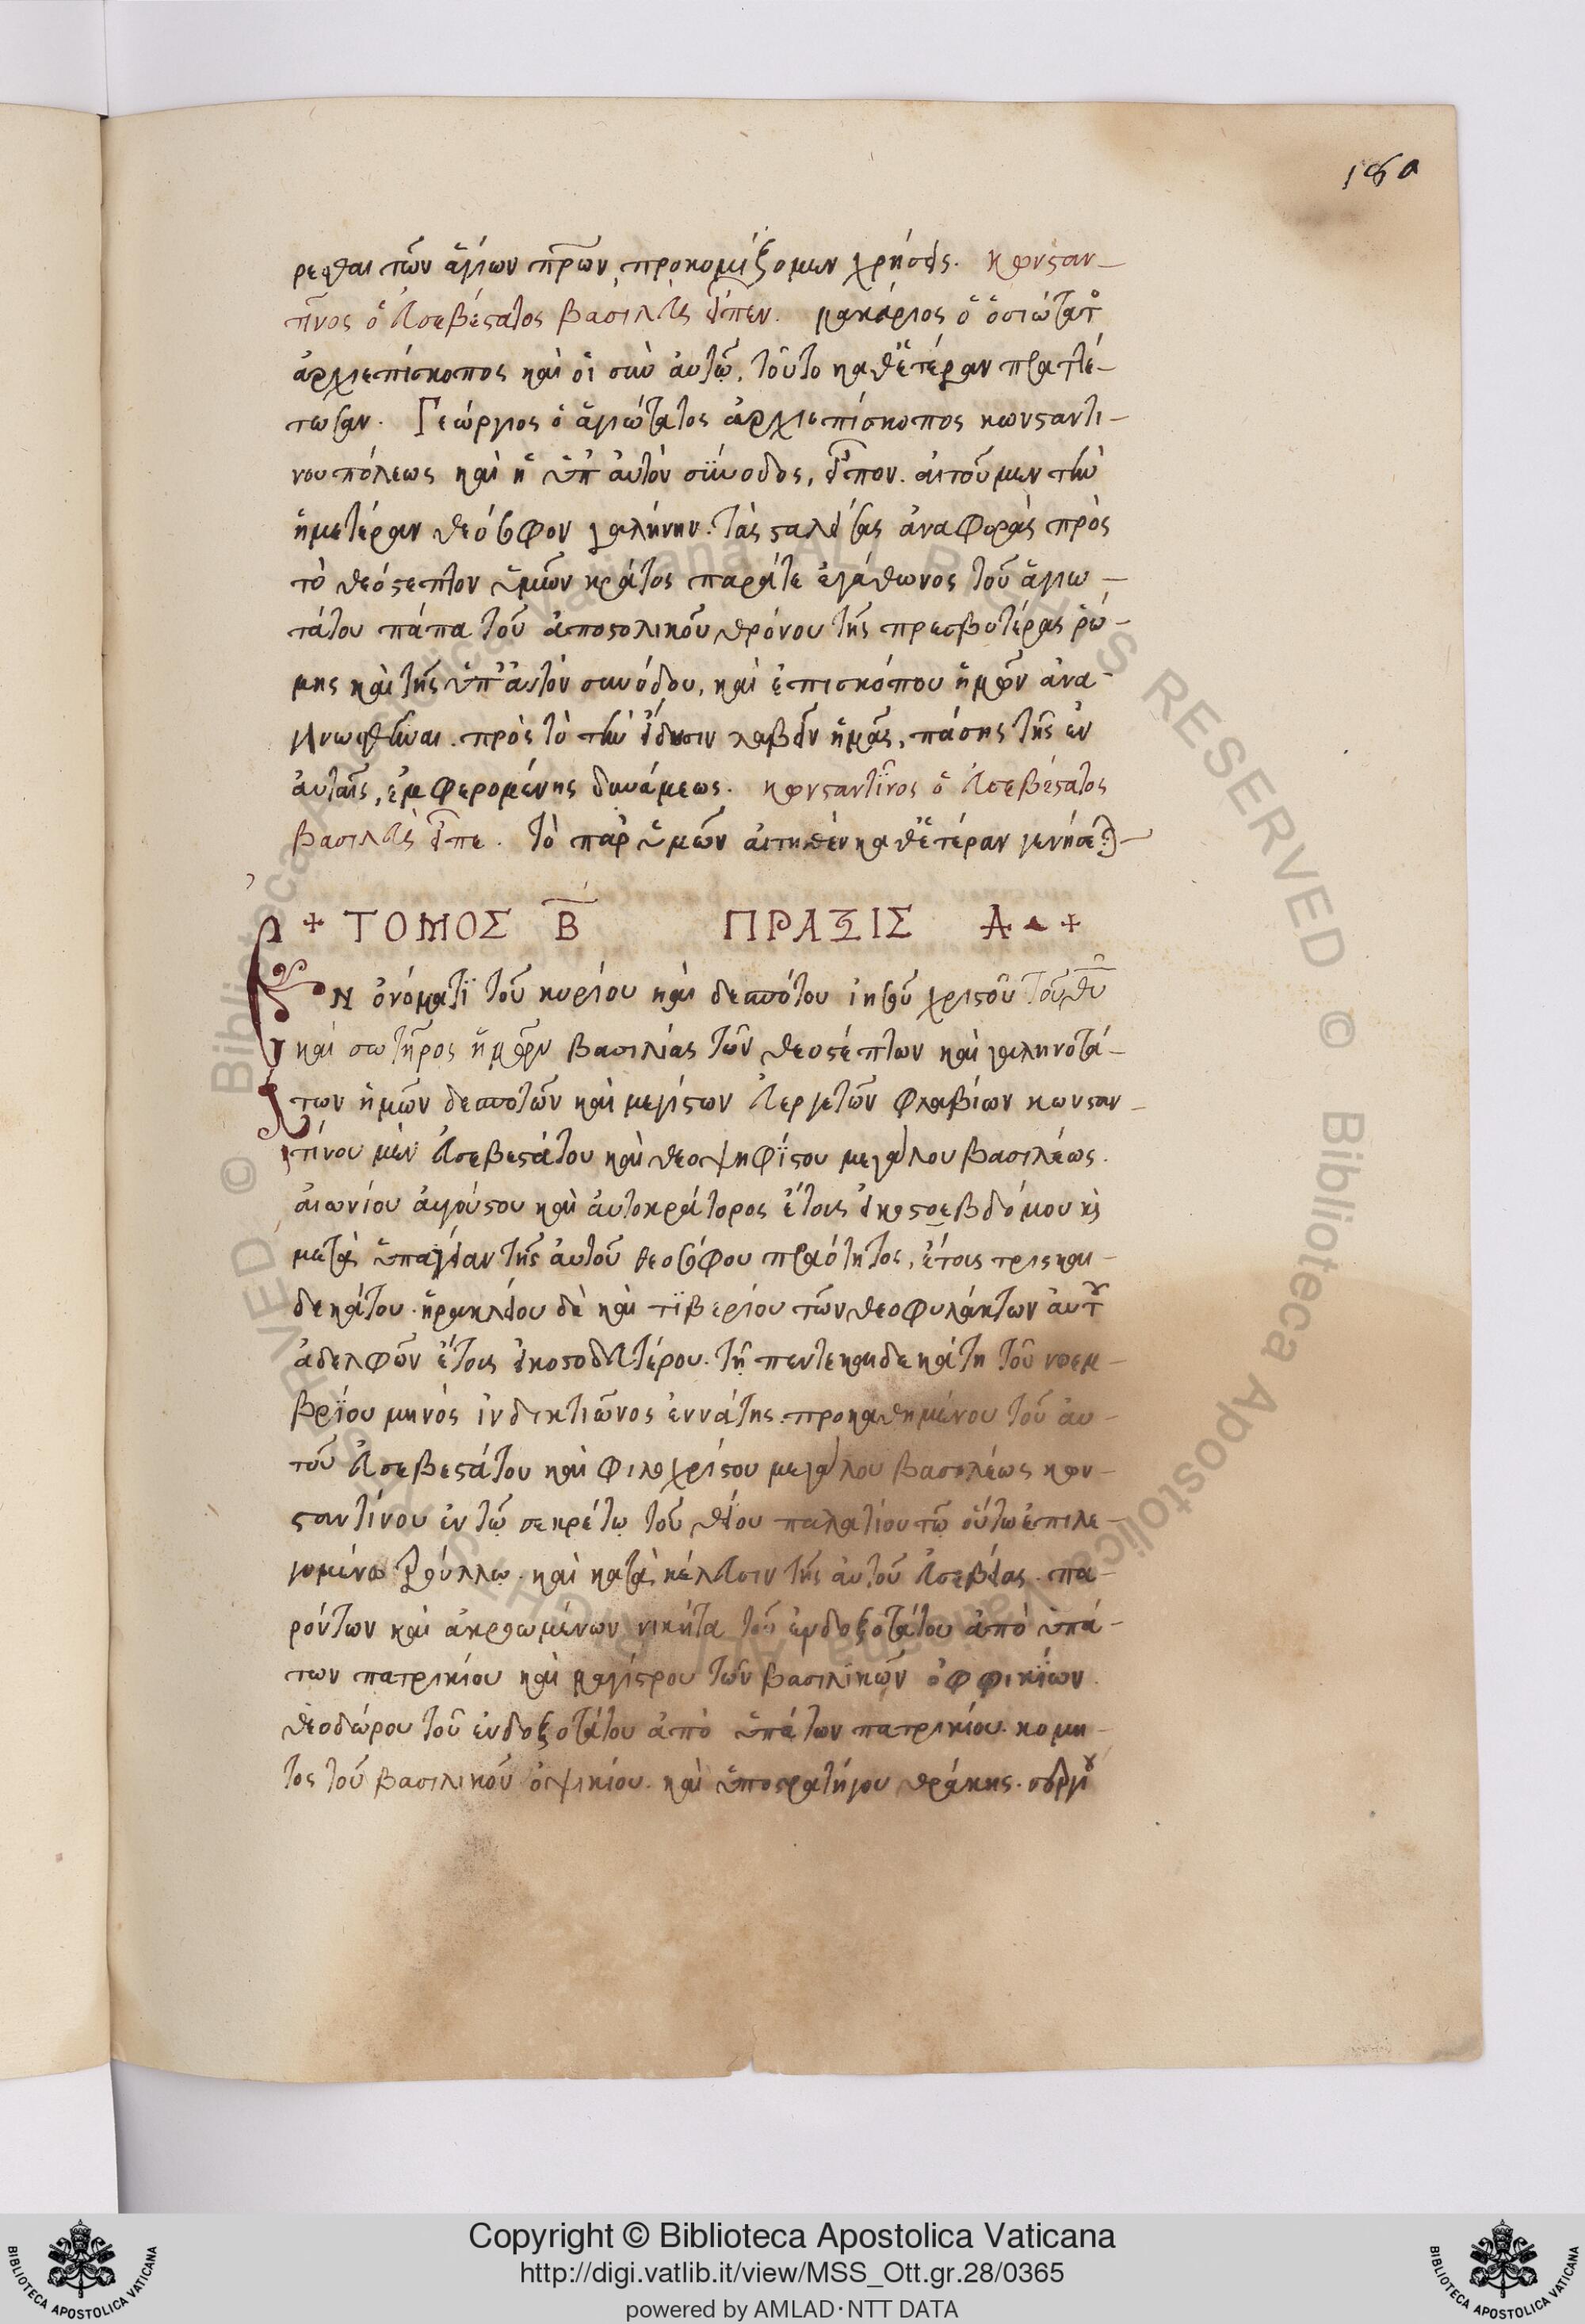 180
ρεσθαι τῶν ἁγίων πρ̅ων, προκομίζομεν χρήσεις. κωνσταν-
τῖνος ὁ εὐσεβέστατος βασιλεὺς εἶπεν. μακάριος ὁ ὁσιώτατο
ἀρχιεπίσκοπος καὶ οἱ σὺν αὐτῶ, τοῦτο καθ' ἑτέραν πραττέ-
τωσαν. Γεώργιος ὁ ἁγιώτατος ἀρχιεπίσκοπος κωνσταντι-
νουπόλεως καὶ ἡ ὑπ' αὐτὸν σύνοδος, εἶπον. αἰτοῦμεν τὴν
ἡμετέραν θεόσοφον γαλήνην. τὰς σταλείσας ἀναφορὰς πρὸς
τὸ θεόσεπτον ὑμῶν κράτος παρά τε ἀγάθωνος τοῦ ἁγιω-
τάτου πάπα τοῦ ἀποστολικοῦ θρόνου τῆς πρεσβυτέρας ῥώ-
μης καὶ τῆς ὑπ' αὐτὸν συνόδου, καὶ ἐπισκόπου ἡμῶν ἀνα-
γνωσθῆναι. πρὸς τὸ τὴν εἴδησιν λαβεῖν ἡμᾶς, πάσης τῆς ἐν
αὐταῖς, ἐμφερομένης δυνάμεως. κωνσταντῖνος ὁ εὐσεβέστατος
βασιλεὺς εἶπε. τὸ παρ' ὑμῶν αἰτηθὲν καθ' ἑτέραν γενήσεται
+ ΤΟΜΟΣ Β̅ ΠΡΑΞΙΣ Α +
Ἐν ὀνόματϊ τοῦ κυρίου καὶ δεσπότου ἰησοῦ χριστοῦ τοῦ θ̅υ̅
καὶ σωτῆρος ἡμῶν βασιλείας τῶν θεοσέπτων καὶ γαληνοτά-
των ἡμῶν δεσποτῶν καὶ μεγίστων εὐεργετῶν φλαβίων κωνσταν-
τίνου μὲν εὐσεβεστάτου καὶ θεοψηφΐστου μεγάλου βασιλέως.
αἰωνίου αὐγούστου καὶ αὐτοκράτορος ἔτους εἰκοστοεβδόμου κ(αὶ)
μετὰ ὑπατείαν τῆς αὐτοῦ θεοσόφου πραότητος, ἔτους τρισκαι-
δεκάτου. ἡρακλείου δὲ καὶ τϊβερίου τῶν θεοφυλάκτων αὐτοῦ
ἀδελφῶν ἔτους εἰκοστοδευτέρου. τῇ πεντεκαιδεκάτη τοῦ νοεμ-
βρΐου μηνὸς ἰνδικτιῶνος ἐννάτης. προκαθημένου τοῦ αὐ-
τοῦ εὐσεβεστάτου καὶ φιλοχρίστου μεγάλου βασιλέως κων-
σταντίνου ἐν τῶ σεκρέτω τοῦ θείου παλατίου τῶ οὕτω ἐπιλε-
γομένω τρούλλω. καὶ κατὰ κέλευσιν τῆς αὐτοῦ εὐσεβείας. πα-
ρόντων καὶ ἀκροωμένων νικήτα τοῦ ἐνδοξοτάτου ἀπὸ ὑπά-
των πατρικίου καὶ μαγίστρου τῶν βασιλϊκῶν ὀφφικΐων.
θεοδώρου τοῦ ἐνδοξοτάτου ἀπὸ ὑπάτων πατρικίου. κομη-
τος τοῦ βασιλικοῦ ὀψικίου. καὶ ὑποστρατήγου θράκης. σεργίου
Copyright © Biblioteca Apostolica Vaticana
http://digi.vatlib.it/view/MSS_Ott.gr.28/0365
powered by AMLAD·NTT DATA